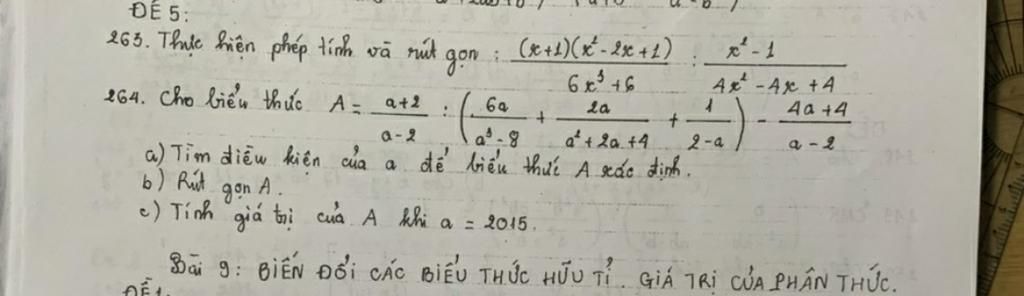 ĐỀ 5:
263. Thực hiện phép tính và rút gọn : (x+1)(x²-2x+1) / 6x³+6 : x²-1 / 4x²-4x+4
264. Cho biểu thức A = a+2 / a-2 : ( 6a / a³-8 + 2a / a²+2a+4 + 1 / 2-a ) - 4a+4 / a-2
a) Tìm điều kiện của a để biểu thức A xác định.
b) Rút gọn A.
c) Tính giá trị của A khi a = 2015.
Bài 9: BIẾN ĐỔI CÁC BIỂU THỨC HỮU TỈ. GIÁ TRỊ CỦA PHÂN THỨC.
ĐỀ 1